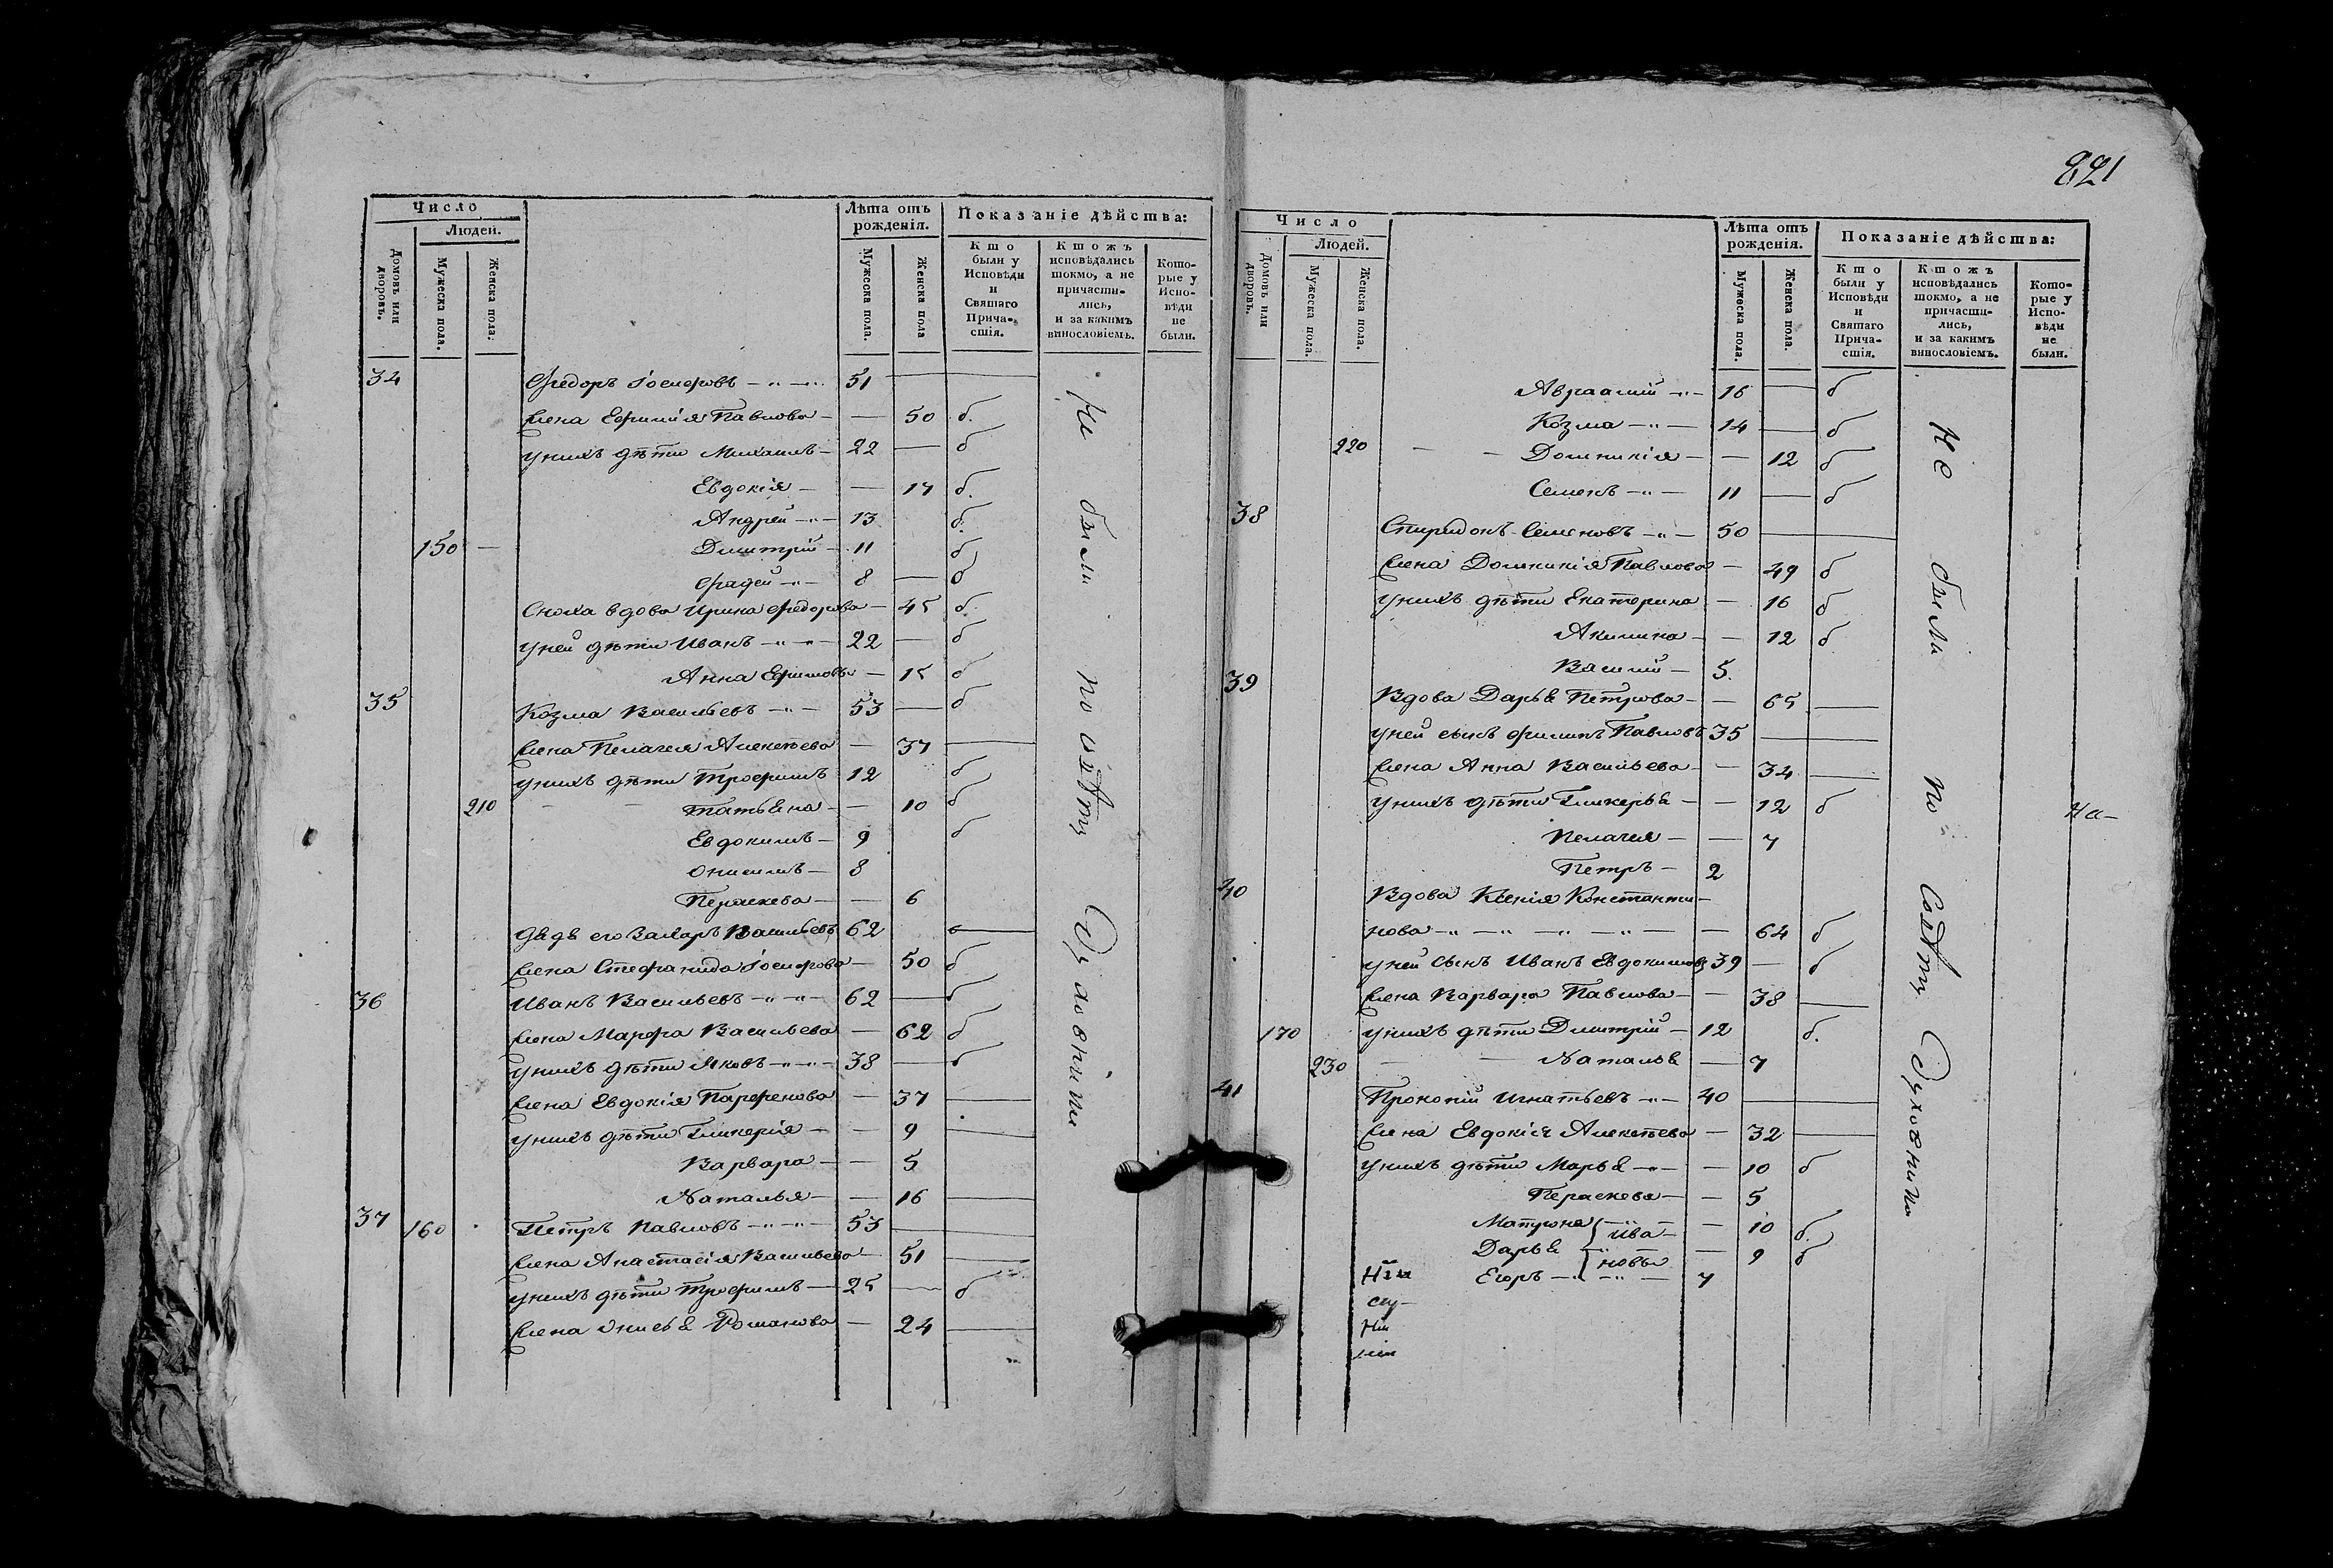 Число
Людей.
Домовъ или дворовъ.
Мужеска пола.
Женска пола.
Лѣта отъ рожденія.
Мужеска пола.
Женска пола
Показаніе дѣйства:
Кто были у Исповѣди и Святаго Прича-стія.
Ктожъ исповѣдались токмо, а не причасти-лись, и за какимъ винословіемъ.
Кото-рые у Испо-вѣди не были.
34 Ѳедоръ Іосифовъ 51
Жена Ефимія Павлова — 50 б.
у нихъ дѣти Михаилъ 22 — б
Евдокія — 17 б.
Андрей 13 б.
150 — Димитрій 11 б
Фадей 8 — б
Сноха вдова Ирина Ѳедорова 45 б.
у ней дѣти Иванъ 22 — б
Анна Ефимовы — 15 б
35 Козма Васильевъ 53 — б
Жена Пелагея Алексѣева — 37
у нихъ дѣти Трофимъ 12 б
210 Татьяна — 10 б
Евдокимъ 9 б
Онисимъ 8
Параскева — 6
дядя его Захаръ Васильевъ 62
Жена Стефанида Іосифова — 50 б
36 Иванъ Васильевъ 62 — б
Жена Марфа Васильева — 62 б
у нихъ дѣти Яковъ 38 — б
Жена Евдокія Парфенова — 37
у нихъ дѣти Гликерія — 9
Варвара — 5
Наталья — 16
37 160 Петръ Павловъ 53
Жена Анастасія Васильева 51
у нихъ дѣти Трофимъ 25 — б
Жена Анисья Романова — 24
Не были по совѣту Духовніи
821
Число
Людей.
Домовъ или дворовъ.
Мужеска пола.
Женска пола.
Лѣта отъ рожденія.
Мужеска пола.
Женска пола.
Показаніе дѣйства:
Кто были у Исповѣди и Святаго Прича-стія.
Ктожъ исповѣдались токмо, а не причасти-лись, и за какимъ винословіемъ.
Кото-рые у Испо-вѣди не были.
Авраамій 16 — б
Козма 14 — б
220 Домникія — 12 б
Семенъ 11 — б
38 Спиридонъ Семеновъ 50
Жена Домникія Павлова — 49 б
у нихъ дѣти Екатерина — 16 б
Акилина — 12 б
Василій 5.
39 Вдова Дарья Петрова — 65
у ней сынъ Филипъ Павловъ 35
Жена Анна Васильева — 34
у нихъ дѣти Гликерья — 12 б
Пелагея — 7
Петръ 2
40 Вдова Ксенія Константи-
нова — 64 б
у ней сынъ Иванъ Евдокимовъ 39 — б
Жена Варвара Павлова — 38
170 у нихъ дѣти Димитрій 12 б.
230 Наталья — 7
41 Прокопій Игнатьевъ 40
Жена Евдокія Алексѣева — 32
у нихъ дѣти Марья — 10 б
Параскева — 5
Матрона — 10 б.
Ива-
Дарья — 9 б
новы
Егоръ 7
Не были по совѣту Духовника
На-